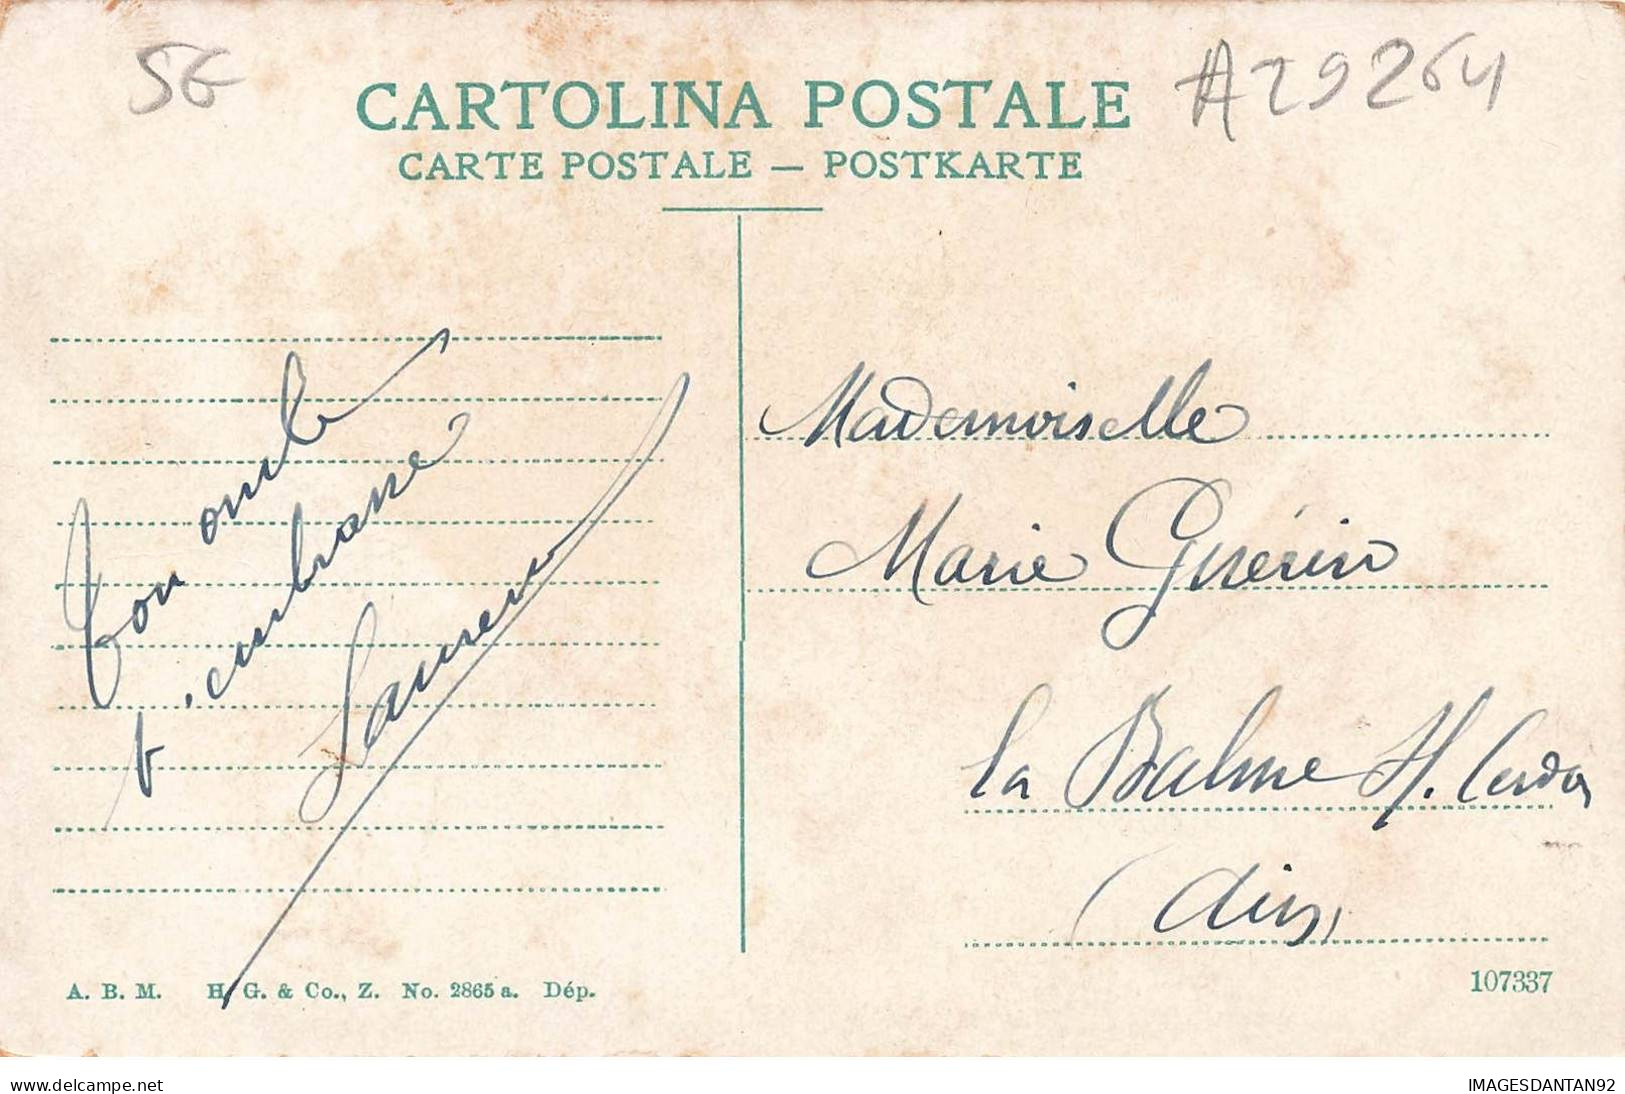 5G
A29264
CARTOLINA POSTALE
CARTE POSTALE — POSTKARTE
Ton oncle
t'embrasse
Laurent
Mademoiselle
Marie Guérin
la Balme H. Cerdon
(Ain)
A. B. M. H. G. & Co., Z. No. 2865 a. Dép.
107337
www.delcampe.net
IMAGESDANTAN92